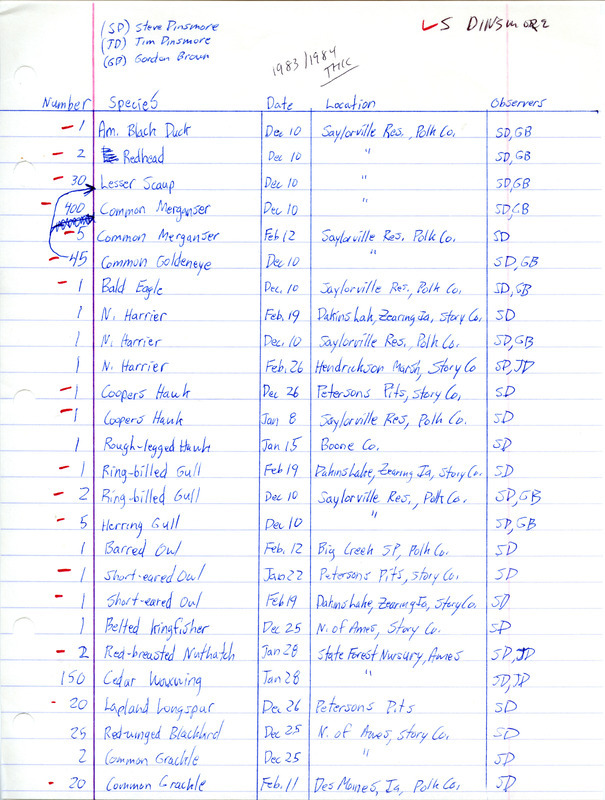 (SD) Steve Dinsmore
(JD) Jim Dinsmore
(GB) Gordon Brown
S DINSMORE
1983/1984
Number Species Date Location Observers
1 Am. Black Duck Dec 10 Saylorville Res., Polk Co. SD, GB
2 Redhead Dec 10 " SD, GB
30 Lesser Scaup Dec 10 " SD, GB
400 Common Merganser Dec 10 " SD, GB
5 Common Merganser Feb 12 Saylorville Res. Polk Co. SD
45 Common Goldeneye Dec 10 " SD, GB
1 Bald Eagle Dec. 10 Saylorville Res., Polk Co. SD, GB
1 N. Harrier Feb. 19 Dakins Lak, Zearing Ia, Story Co. SD
1 N. Harrier Dec, 10 Saylorville Res. Polk Co. SD, GB
1 N. Harrier Feb. 26 Hendrickson Marsh, Story Co SD, JD
1 Coopers Hawk Dec 26 Petersons Pits, Story Co, SD
1 Coopers Hawk Jan 8 Saylorville Res, Polk Co. SD
1 Rough-legged Hawk Jan 15 Boone Co. SD
1 Ring-billed Gull Feb 19 Dakins Lake, Zearing Ia, Story Co. SD
2 Ring-billed Gull Dec 10 Saylorville Res., Polk Co. SD, GB
5 Herring Gull Dec 10 " SD, GB
1 Barred Owl Feb. 12 Big Creek SP, Polk Co. SD
1 Short-eared Owl Jan 22 Petersons Pits, Story Co, SD
1 Short-eared Owl Feb 19 Dakins Lake, Zearing Ia, Story Co. SD
1 Belted Kingfisher Dec 25 N. of Ames, Story Co. SD
2 Red-breasted Nuthatch Jan 28 State Forest Nursury, Ames SD, JD
150 Cedar Waxwing Jan 28 " SD, JD
20 Lapland Longspur Dec 26 Petersons Pits SD
25 Red-winged Blackbird Dec 25 N. of Ames, Story Co. SD
2 Common Grackle Dec 25 " SD
20 Common Grackle Feb. 11 Des Moines, Ia, Polk Co. SD